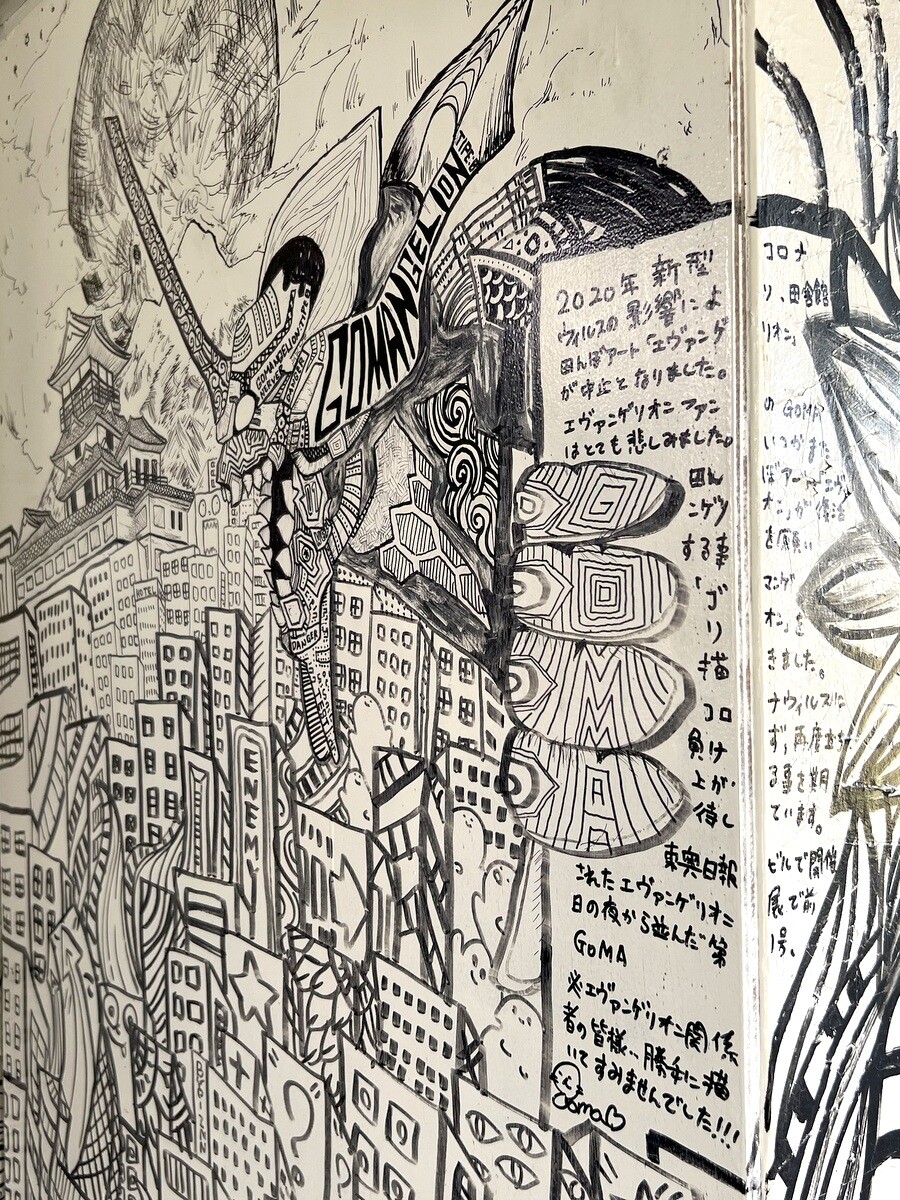 GOMANGELION
TYPE
GOMANGELION
ENEMY
DANGER
HOTEL
G
O
M
A
2020年 新型コロナ
ウィルスの影響により、田舎館
田んぼアート「エヴァンゲリオン」
が中止となりました。
エヴァンゲリオン ファンの GOMA
はとても悲しみました。いつかまた
田んぼアート「エヴァ
ンゲリオン」が復活
する事を願い
「ゴマンゲ
リオン」を
描きました。
コロナウィルスに
負けず、再度立ち
上がる事を期
待しています。
東奥日報ビルで開催
されたエヴァンゲリオン展で前
日の夜から並んだ 第1号。
GOMA
※エヴァンゲリオン関係
者の皆様、勝手に描
いてすみませんでした!!!
Goma